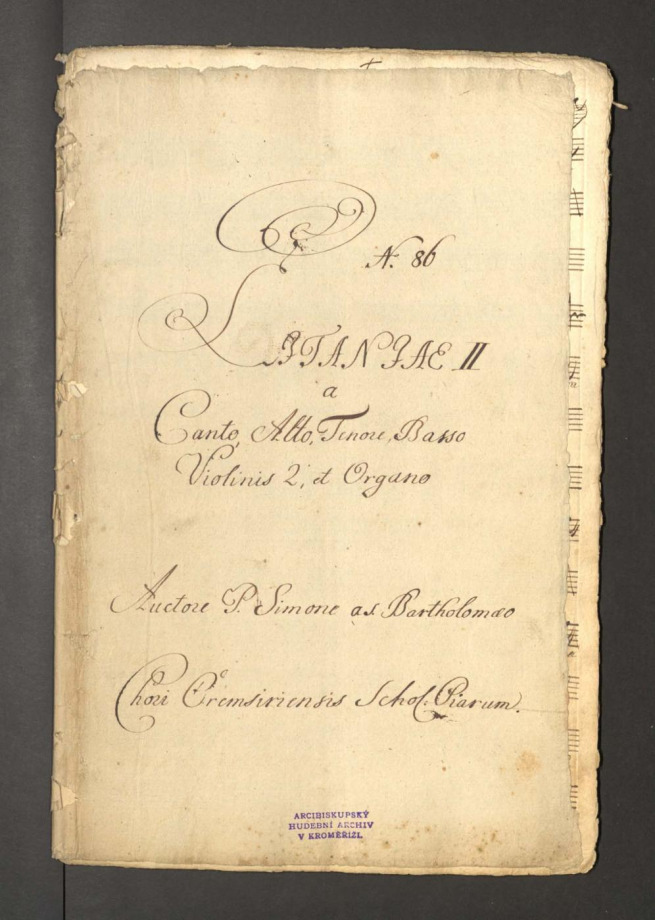 N. 86
LITANIAE II
a
Canto, Alto, Tenore, Basso
Violinis 2, et Organo
Auctore P. Simone a S. Bartholomæo
Chori Cremsiriensis Schol. Piarum.
ARCIBISKUPSKÝ
HUDEBNÍ ARCHIV
V KROMĚŘÍŽI.